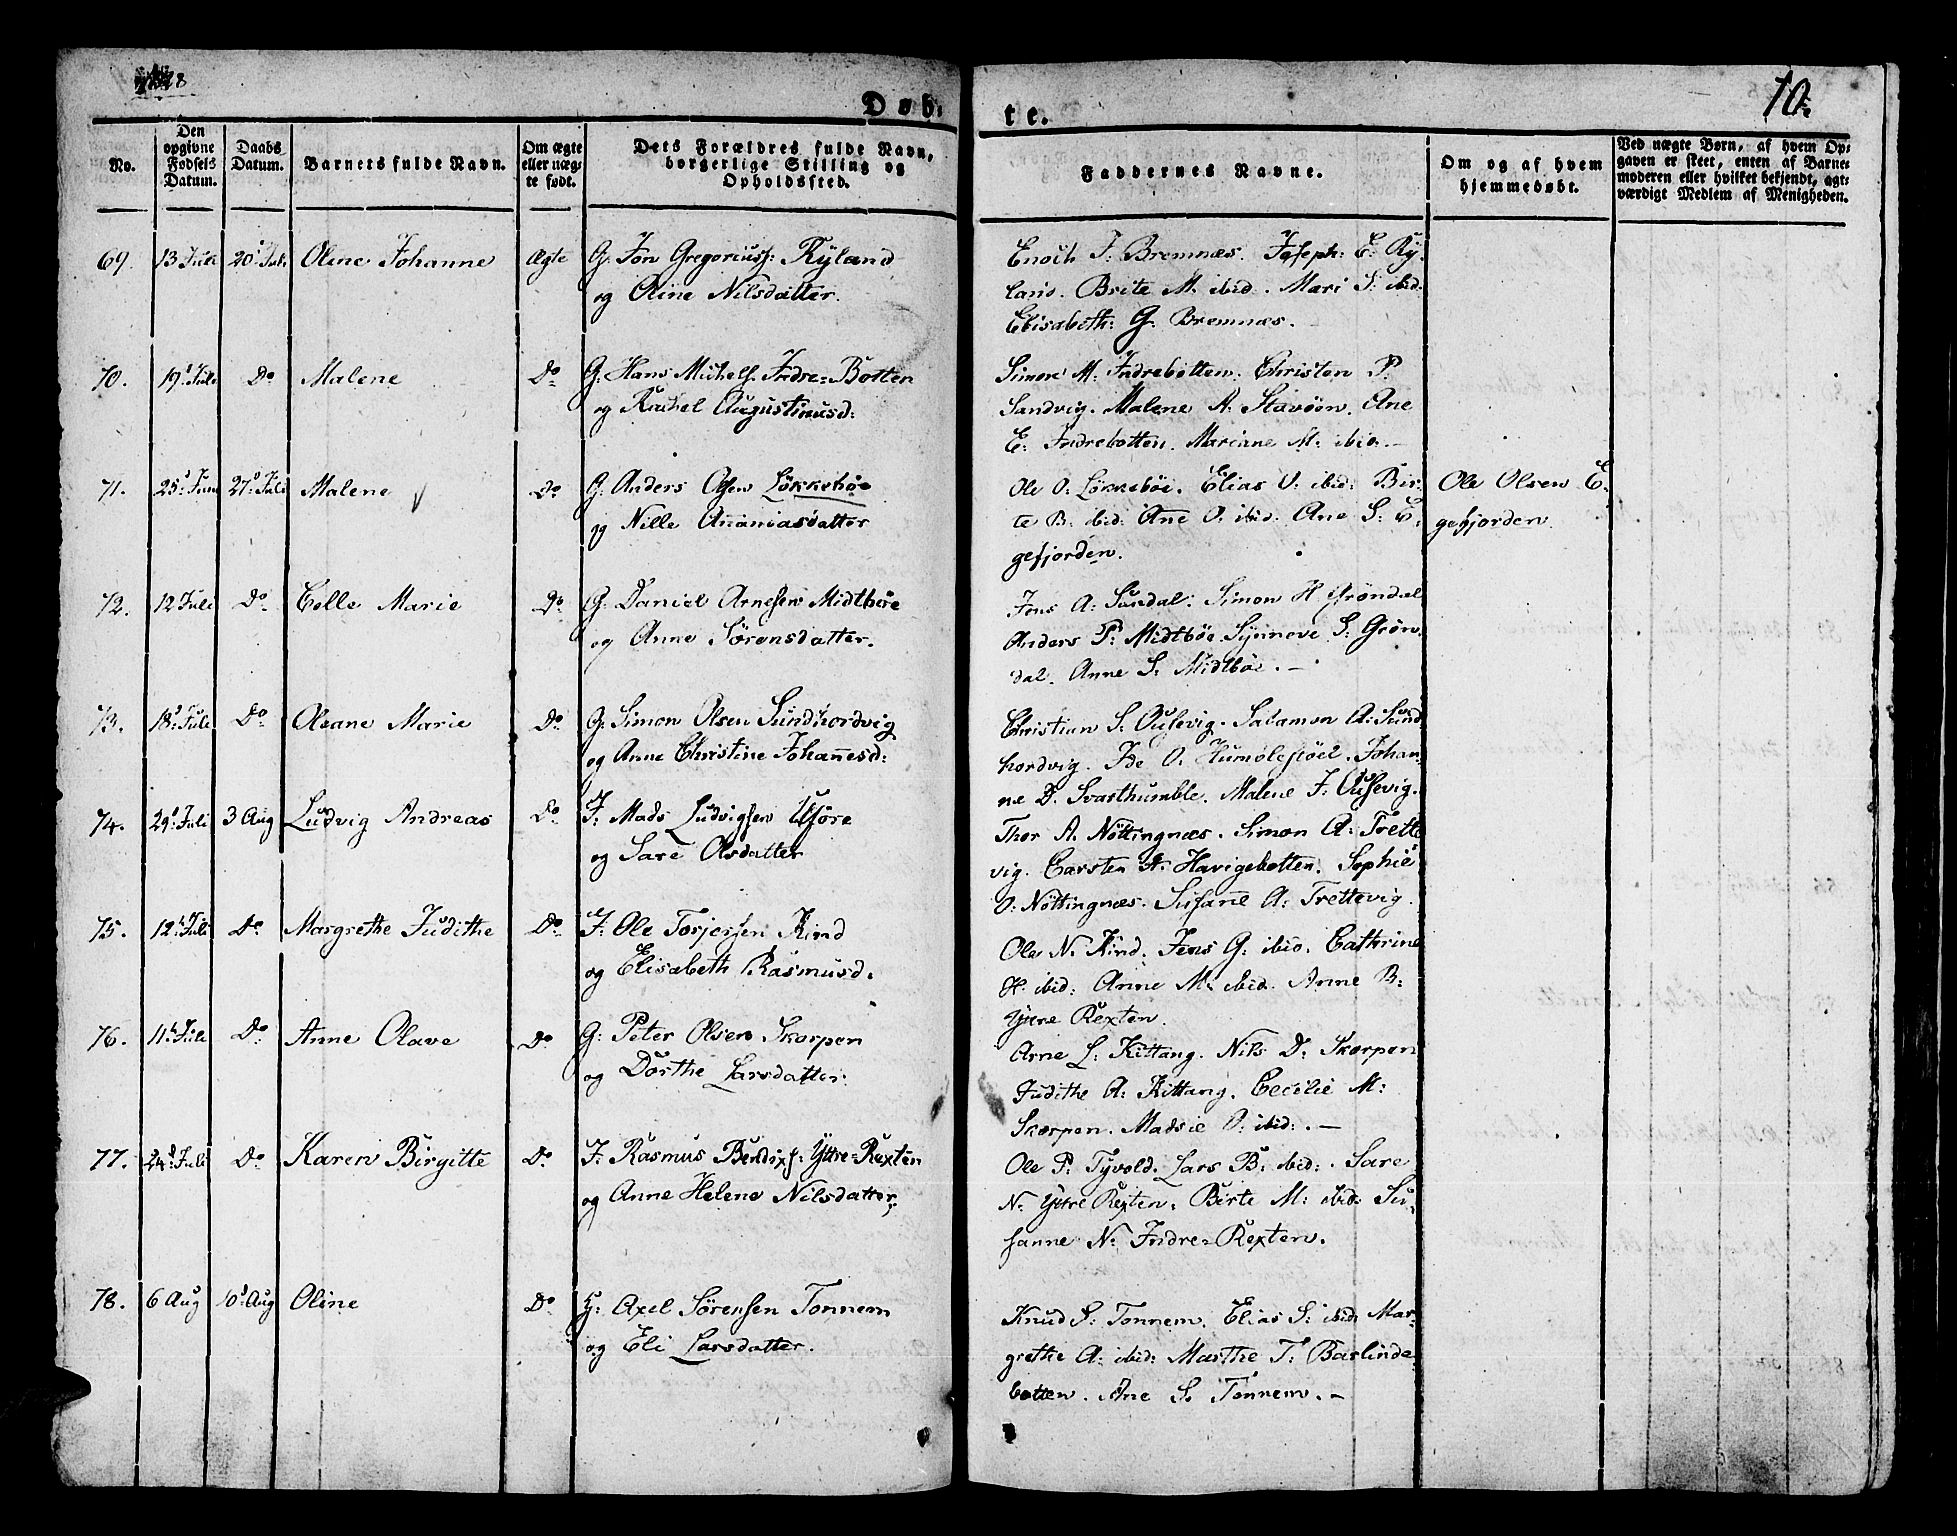 Døb-
te.
10.
No.
Den opgivne Fødsels Datum.
Daabs Datum.
Barnets fulde Navn.
Om ægte eller uæg- te født.
Dets Forældres fulde Navn, borgerlige Stilling og Opholdssted.
Faddernes Navne.
Om og af hvem hjemmedøbt.
Ved uægte Børn, af hvem Op- gaven er skeet, enten af Barne- moderen eller hvilket bekjendt, agt- værdigt Medlem af Menigheden.
69. 13 Juli 20 Juli Oline Johanne Ægte G: Jon Gregoriuss: Ryland
og Oline Nilsdatter.
Enoch J: Bremnæs. Joseph: E: Ry-
land. Brite M. ibid. Mari S: ibid:
Elisabeth: G: Bremnæs.
70. 19 Juli Do Malene Do G: Hans Michels. Indre-Botten
og Rachel Augustinusd:
Simon M: Indrebotten. Christen P.
Sandvig. Malene A. Stavøen. Ane
E: Indrebotten. Mariane M: ibid.-
71. 25 Juni 27 Juli Malene Do G: Anders Olsen Løkkebøe
og Nille Ananiasdatter
Ole O: Løkkebøe. Elias O: ibid: Bir-
te B: ibid: Ane O. ibid. Ane S: E-
gefjorden.
Ole Olsen E-
gefjorden
72. 12 Juli Do Celle Marie Do G: Daniel Arnesen Midtbøe
og Anne Sørensdatter.
Jens A: Sundal: Simon H. Grøndal
Anders P: Midtbøe. Synneve S: Grøn-
dal. Anne S: Midtbøe. -
73. 18 Juli Do Olsane Marie Do G: Simon Olsen Sundhordvig
og Anne Christine Johannesd:
Christian S. Ousevig. Salamon A: Sund
hordvig. Ide O. Humølestøel. Johan-
ne D. Svarthumble. Malene J. Ousevig.
74. 29 Juli 3 Aug Ludvig Andreas Do J: Mads Ludvigsen
og Sare Olsdatter
Thor A. Nøttingnæs. Simon A: Trette
vig. Carsten A. Havigebotten. Sophie
O: Nøttingnæs. Susane A: Trettevig.
75. 12 Juli Do Margrethe Judithe Do J: Ole Torjersen Kind
og Elisabeth Rasmusd.
Ole N. Kind. Jens G: ibid. Cathrine
H. ibid: Anne M. ibid. Anne B:
Yttre Rexten.
76. 11 Juli Do Anne Olave Do G: Peter Olsen Skorpen
og Dorthe Larsdatter.
Arne L: Kittang. Nils D: Skorpen
Judithe A: Kittang. Cecilie M:
Skorpen. Madsie O: ibid:. -
77. 24 Juli Do Karen Birgitte Do J: Rasmus Bendixs: Yttre-Rexten
og Anne Helene Nilsdatter.
Ole P: Tyvold. Lars B: ibid:. Sare
N: Yttre Rexten. Birte M: ibid: Su-
sanne N: Indre-Rexten.
78. 6 Aug 10 Aug Oline Do G: Axel Sørensen Tonnem
og Eli Larsdatter.
Knud S: Tonnem. Elias S: ibid: Mar-
grethe A: ibid: Marthe T: Barlinde-
botten. Ane S. Tonnem. -